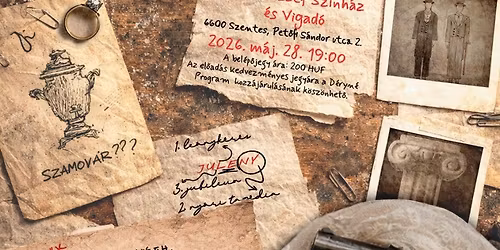 Színház
és Vigadó
6600 Szentes, Petőfi Sándor utca 2.
2026. máj. 28. 19:00
A belépőjegy ára: 200 HUF
Az előadás kedvezményes jegyára a Déryné
Program hozzájárulásának köszönhető.
SZAMOVÁR???
1. leánykérés
3. jubileum